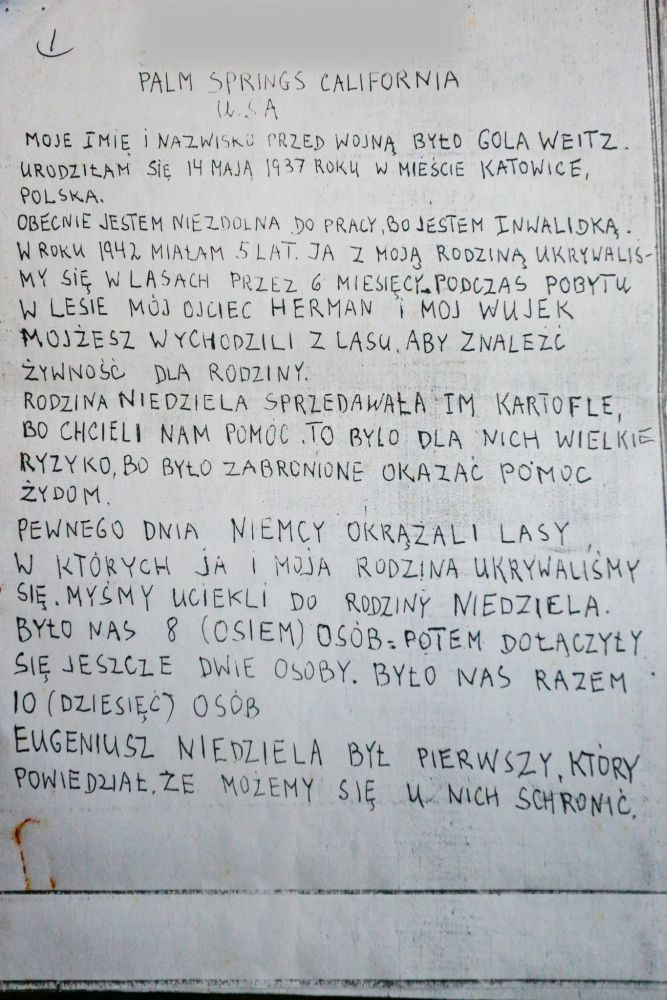 1
PALM SPRINGS CALIFORNIA
U.S A
MOJE IMIĘ i NAZWISKO PRZED WOJNĄ BYŁO GOLA WEITZ.
URODZIŁAM SIĘ 14 MAJĄ 1937 ROKU W MIEŚCIE KATOWICE,
POLSKA.
OBECNIE JESTEM NIEZDOLNA DO PRACY, BO JESTEM INWALIDKĄ.
W ROKU 1942 MIAŁAM 5 LAT. JA Z MOJĄ RODZINĄ UKRYWALIŚ-
MY SIĘ W LASACH PRZEZ 6 MIESIĘCY. PODCZAS POBYTU
W LESIE MÓJ OJCIEC HERMAN i MOJ WUJEK
MOJŻESZ WYCHODZILI Z LASU, ABY ZNALEŹĆ
ŻYWNOŚĆ DLA RODZINY.
RODZINA NIEDZIELA SPRZEDAWAŁA IM KARTOFLE,
BO CHCIELI NAM POMÓC. TO BYLO DLA NICH WIELKIE
RYZYKO, BO BYŁO ZABRONIONE OKAZAĆ POMOC
ŻYDOM.
PEWNEGO DNIA NIEMCY OKRĄŻALI LASY,
W KTÓRYCH JA I MOJA RODZINA UKRYWALIŚMY
SIĘ. MYŚMY UCIEKLI DO RODZINY NIEDZIELA.
BYŁO NAS 8 (OSIEM) OSÓB. POTEM DOŁĄCZYŁY
SIĘ JESZCZE DWIE OSOBY. BYŁO NAS RAZEM
10 (DZIESIĘĆ) OSÓB
EUGENIUSZ NIEDZIELA BYŁ PIERWSZY, KTÓRY
POWIEDZIAŁ, ŻE MOŻEMY SIĘ U NICH SCHRONIĆ.